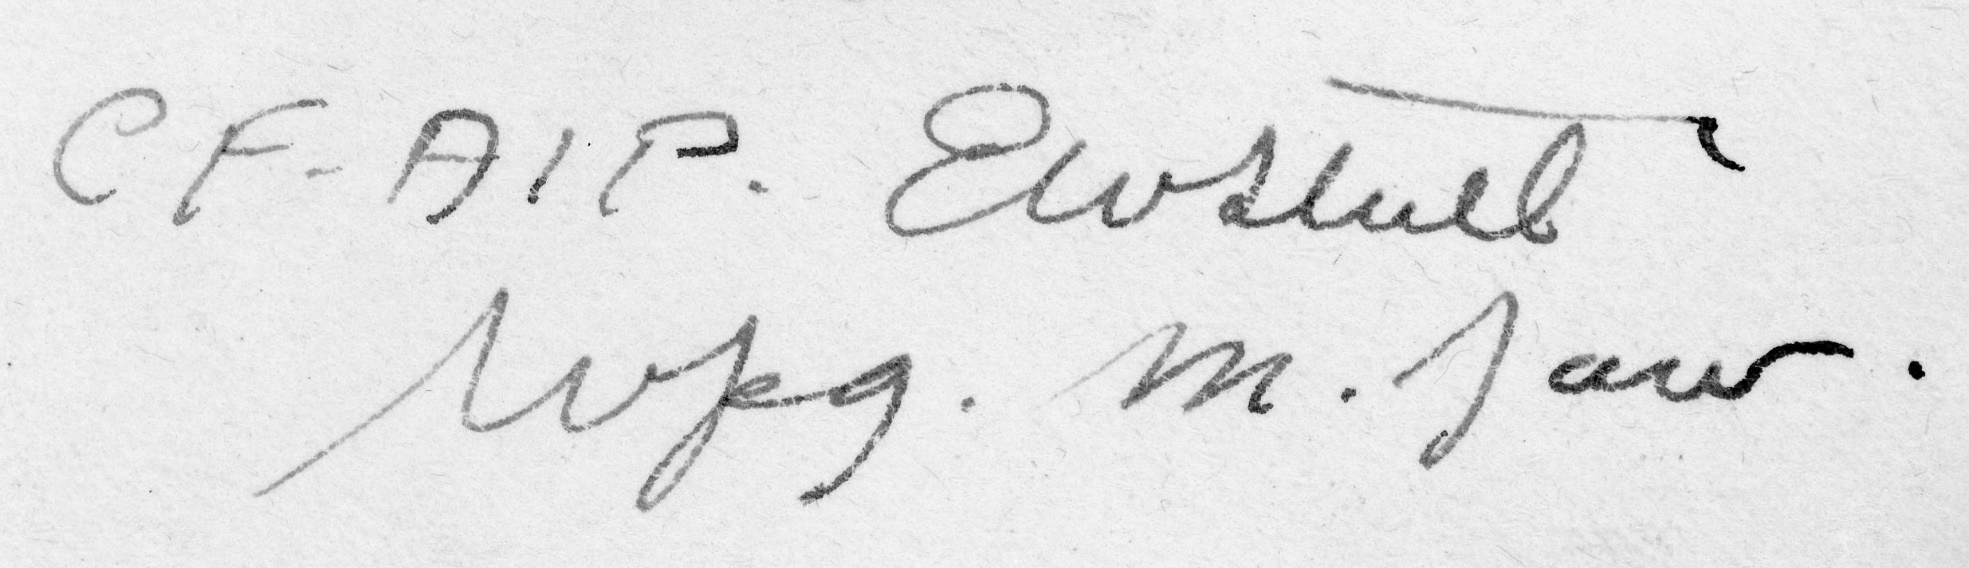 CF-AIP. EW Stull
Wpg. M. Jaw.